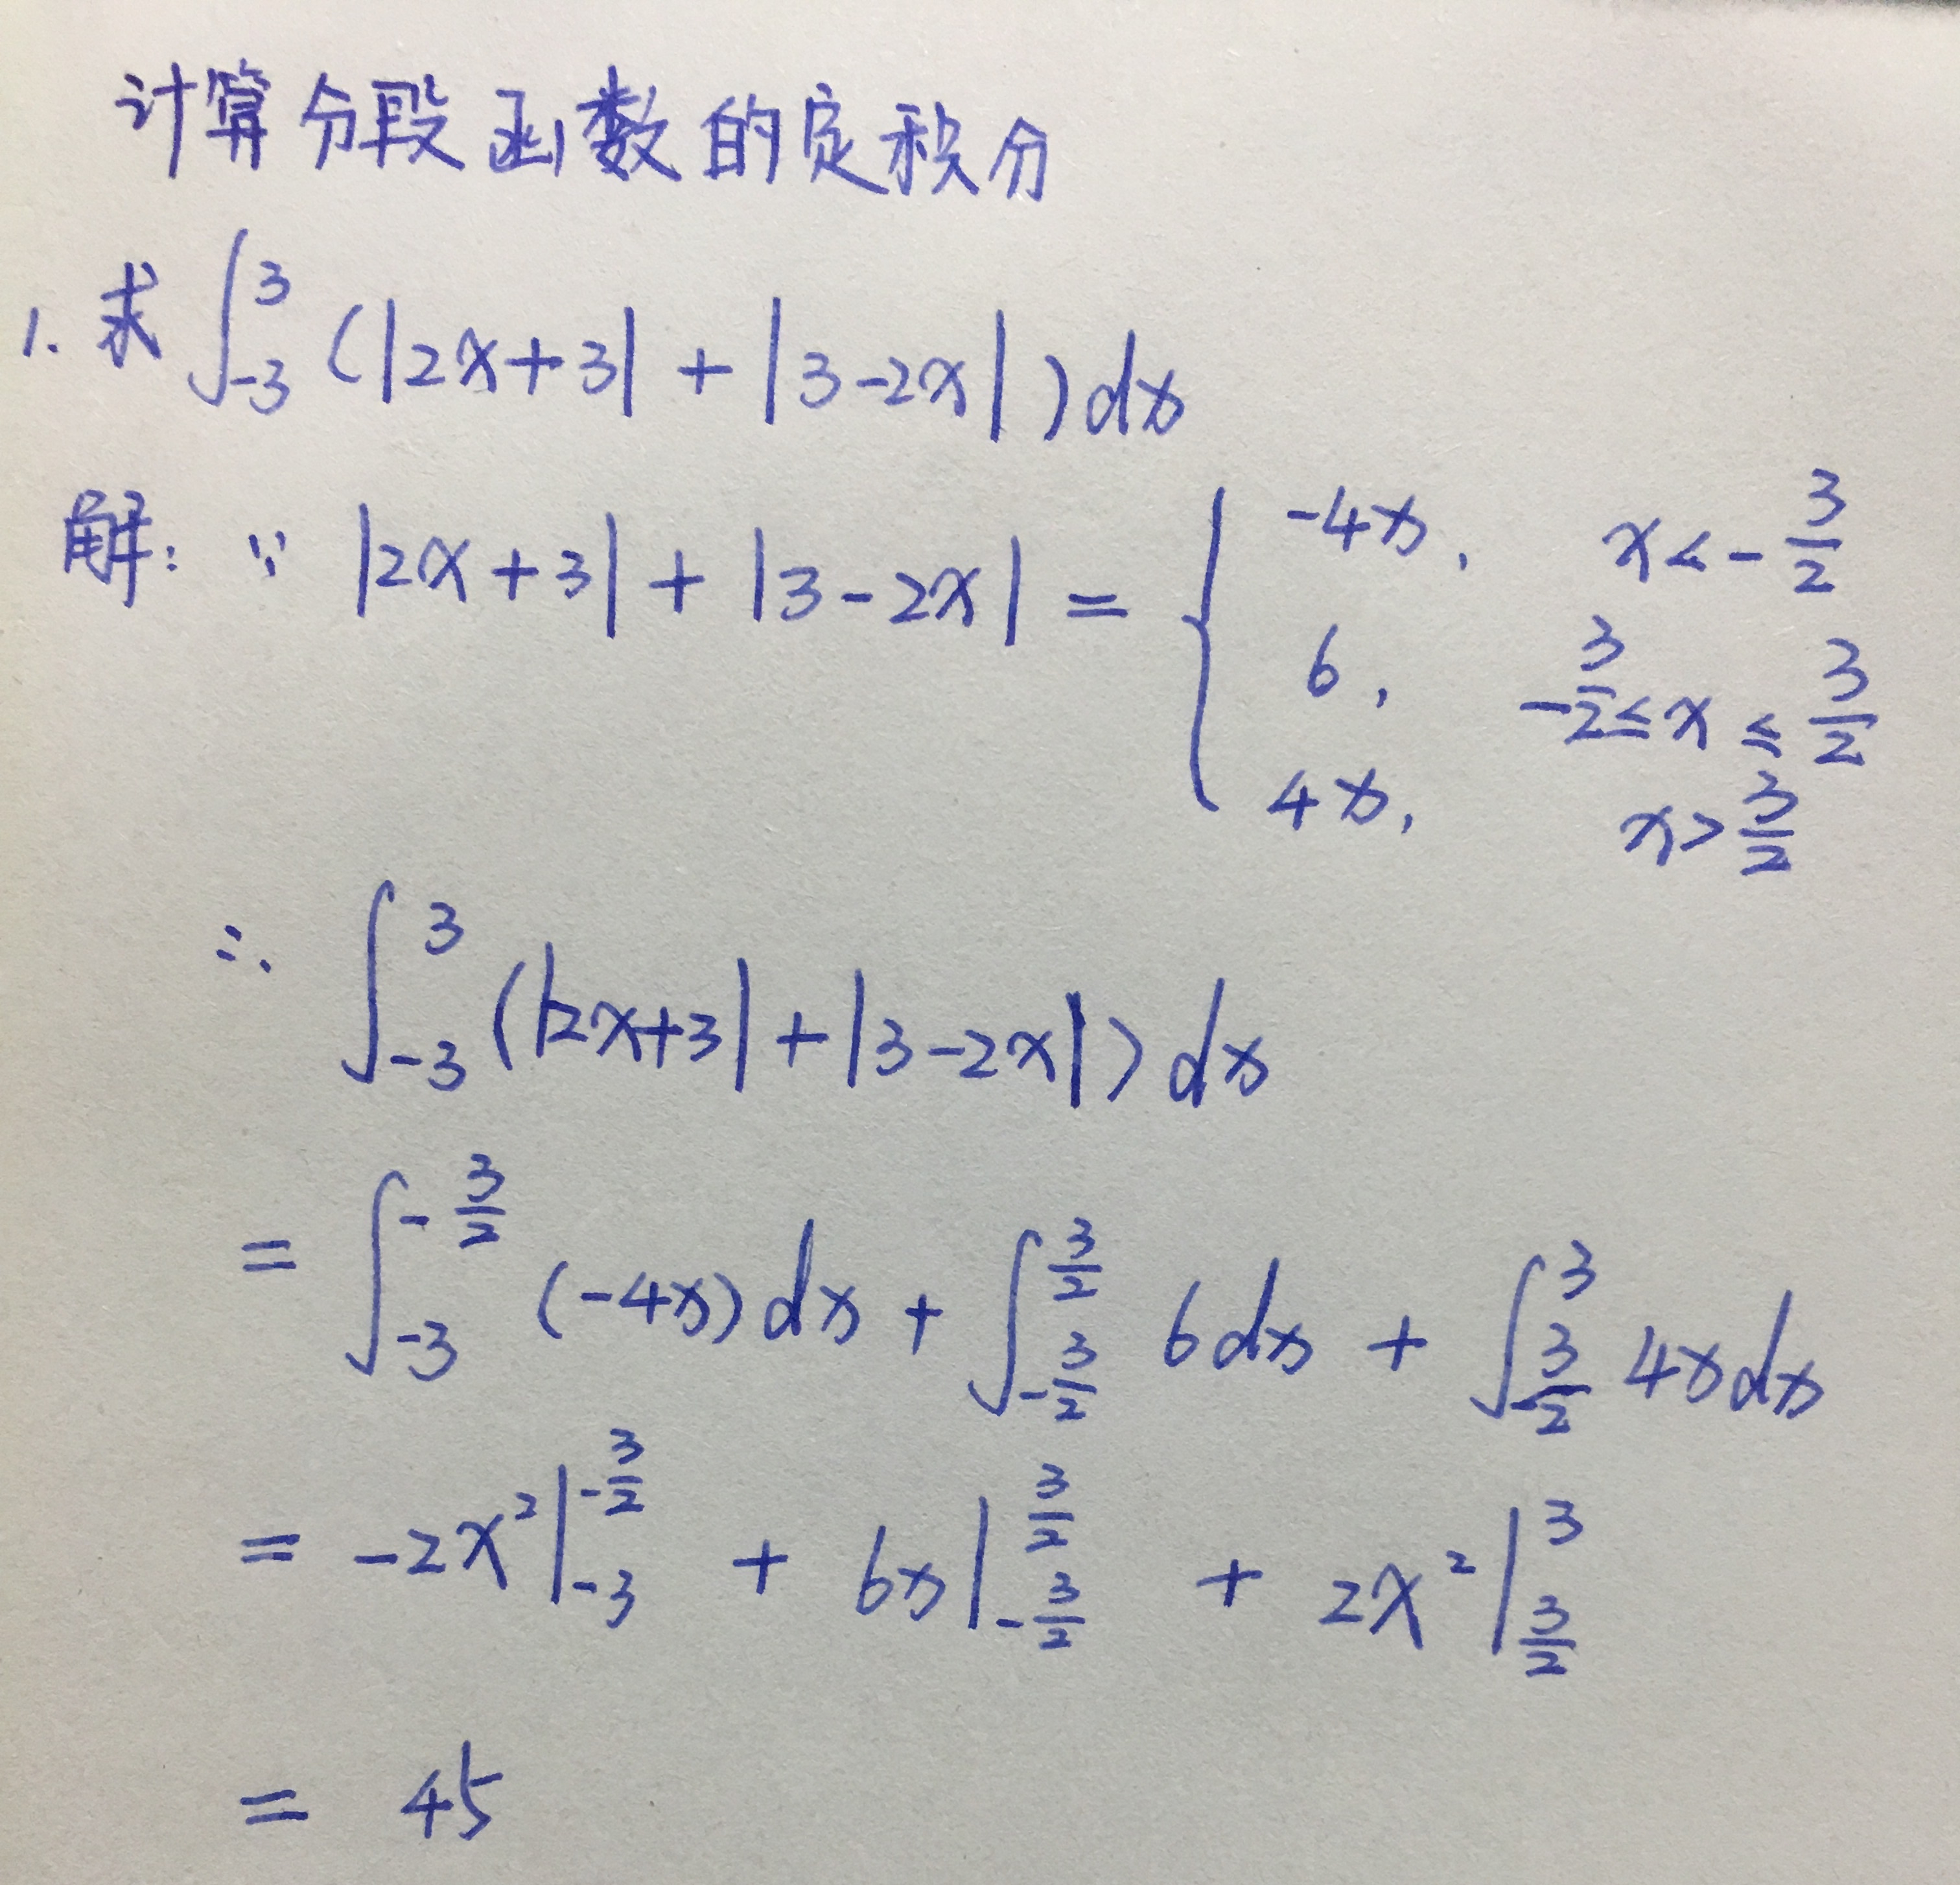 计算分段函数的定积分
1. 求 ∫_{-3}^{3} (|2x+3| + |3-2x|) dx
解: ∵ |2x+3| + |3-2x| = { -4x, x < -3/2
6, -3/2 ≤ x ≤ 3/2
4x, x > 3/2
∴ ∫_{-3}^{3} (|2x+3| + |3-2x|) dx
= ∫_{-3}^{-3/2} (-4x) dx + ∫_{-3/2}^{3/2} 6 dx + ∫_{3/2}^{3} 4x dx
= -2x² |_{-3}^{-3/2} + 6x |_{-3/2}^{3/2} + 2x² |_{3/2}^{3}
= 45